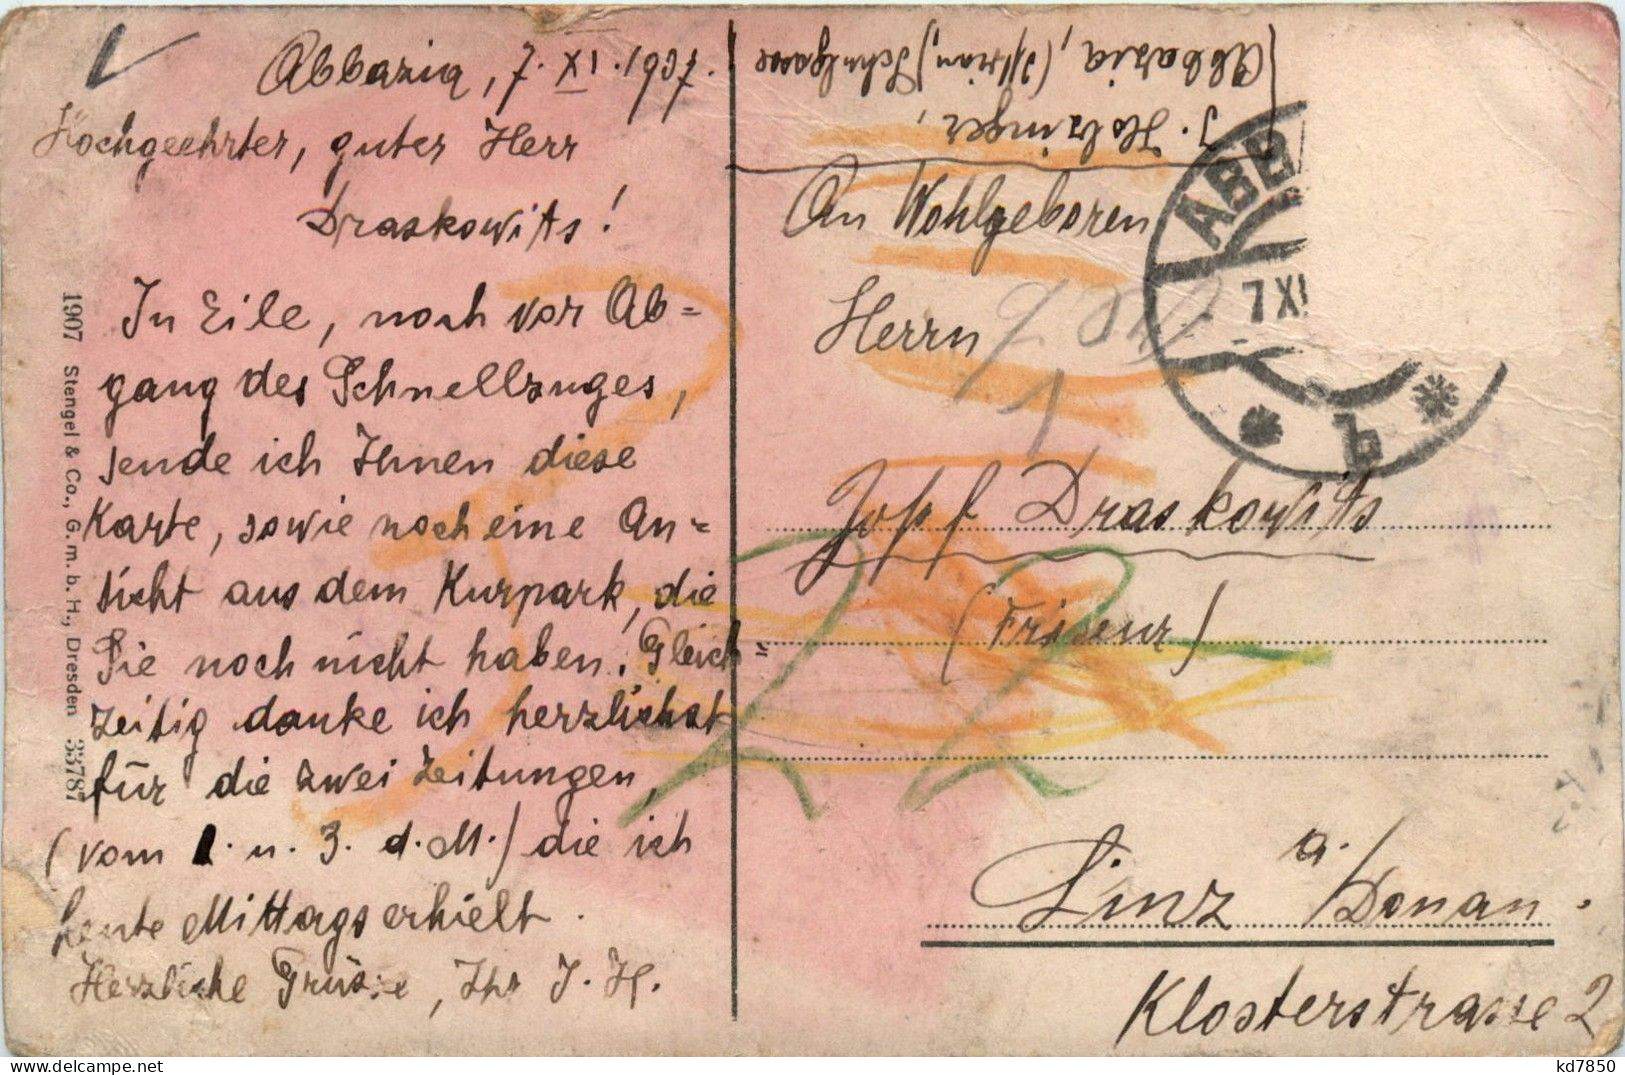 Abbazia, 7. XI. 1907.
Hochgeehrter, guter Herr
Draskowits!
In Eile, noch vor Ab=
gang des Schnellzuges,
sende ich Ihnen diese
Karte, sowie noch eine An=
sicht aus dem Kurpark, die
Sie noch nicht haben. Gleich=
zeitig danke ich herzlichst
für die zwei Zeitungen,
(vom 1. u. 3. d. M.) die ich
heute Mittags erhielt.
Herzliche Grüsse, Ihr J. H.
1907 Stengel & Co., G. m. b. H., Dresden 33787
J. Holzinger,
Abbazia, (Istrien) Schulgasse
An Wohlgeboren
Herrn
Josef Draskowits
(Friseur)
Linz a/Donau.
Klosterstrasse 2
ABB
7 XI
* b *
kd7850